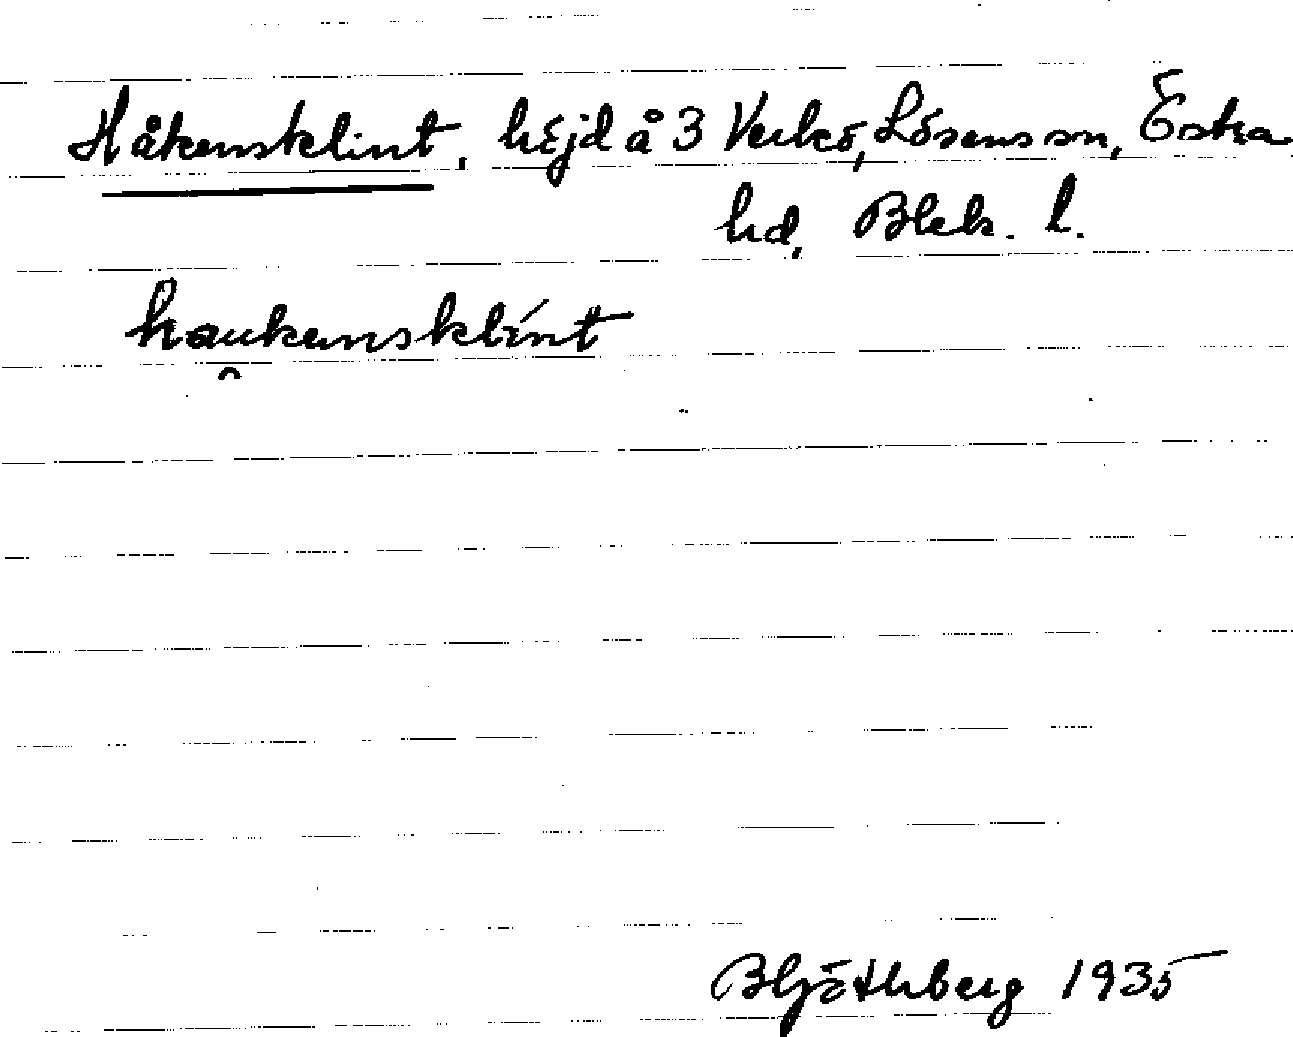 Håkensklint, höjd å 3 Verkö, Lösens sn, Östra
hd, Blek. l.
hau̯kensklínt
B HjÖthberg 1935